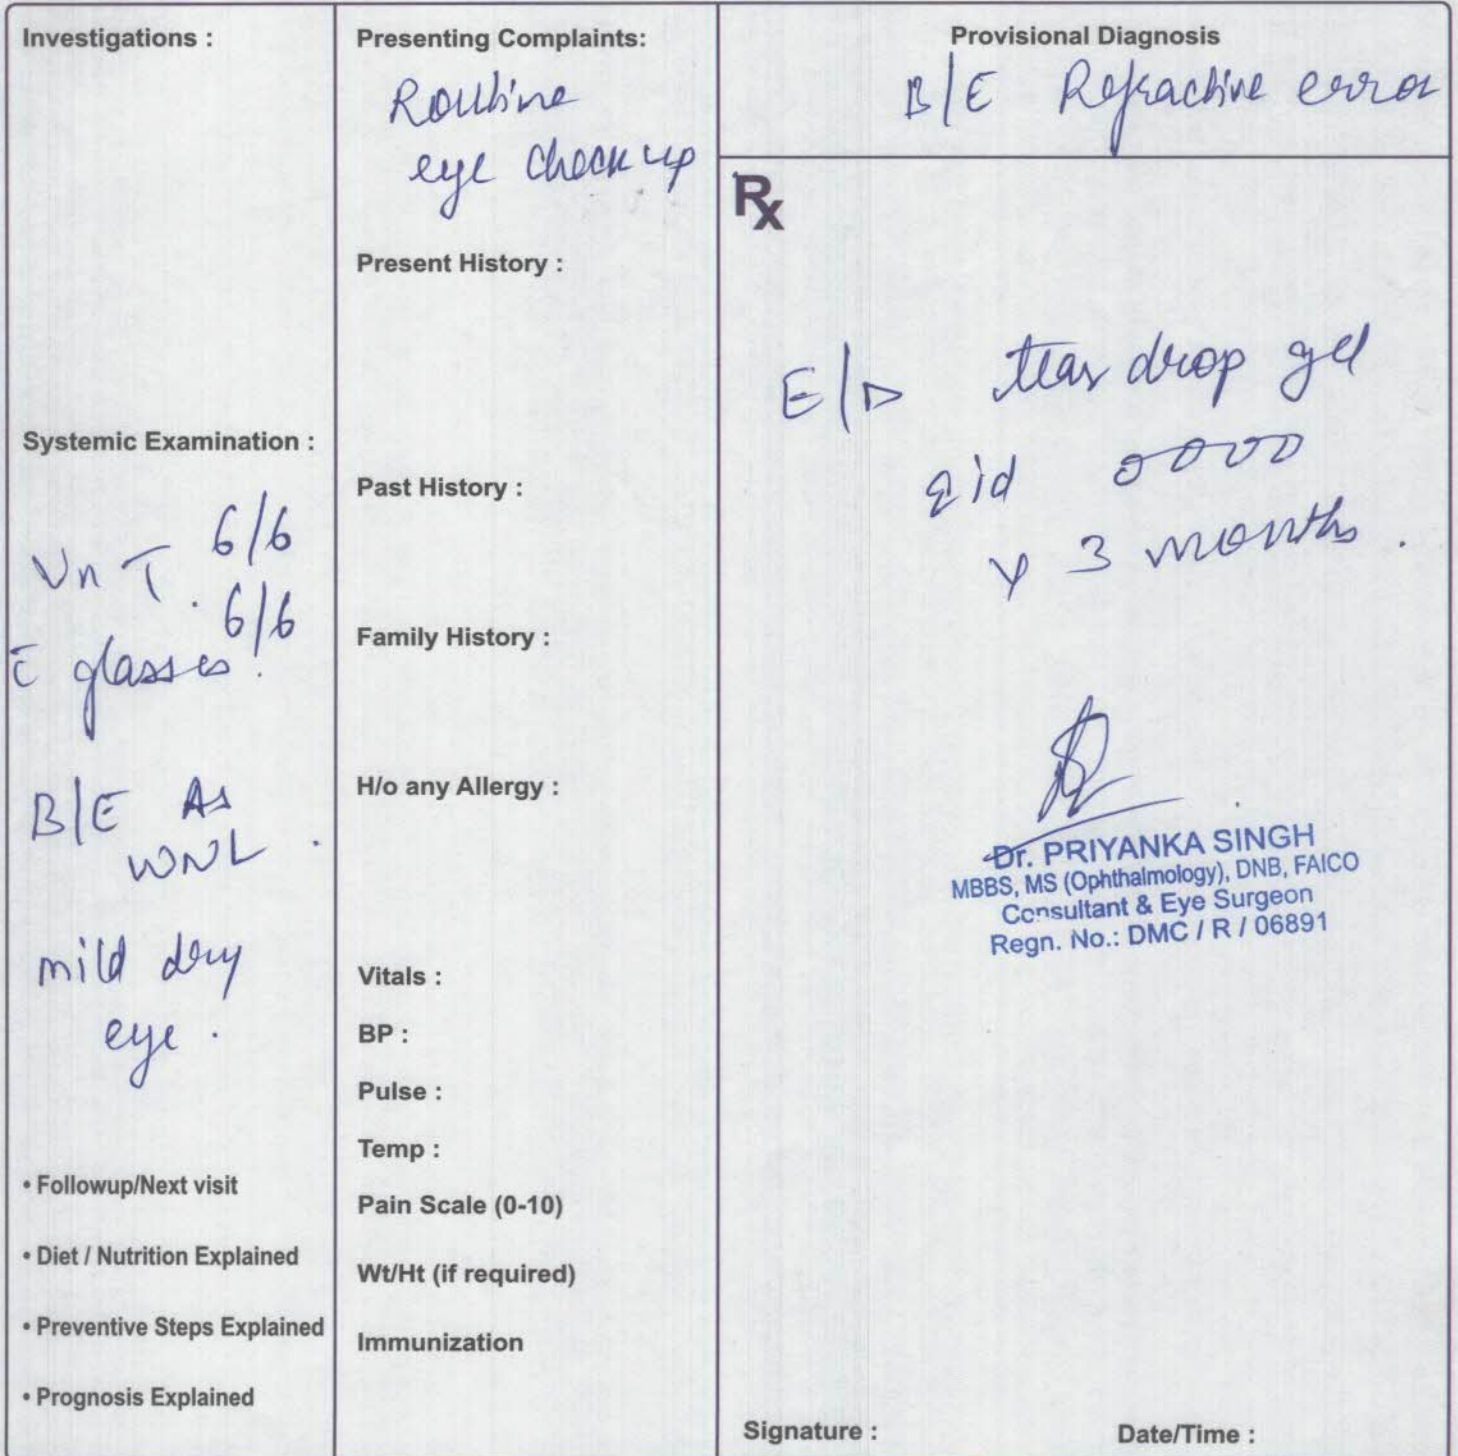 Investigations :
Systemic Examination :
Vn 6/6
6/6
c̄ glasses
B/E As
WNL .
mild dry
eye .
• Followup/Next visit
• Diet / Nutrition Explained
• Preventive Steps Explained
• Prognosis Explained
Presenting Complaints:
Routine
eye check up
Present History :
Past History :
Family History :
H/o any Allergy :
Vitals :
BP :
Pulse :
Temp :
Pain Scale (0-10)
Wt/Ht (if required)
Immunization
Provisional Diagnosis
B/E Refractive error
Rx
E/D tear drop gel
qid 0000
x 3 months .
Dr. PRIYANKA SINGH
MBBS, MS (Ophthalmology), DNB, FAICO
Consultant & Eye Surgeon
Regn. No.: DMC / R / 06891
Signature :
Date/Time :